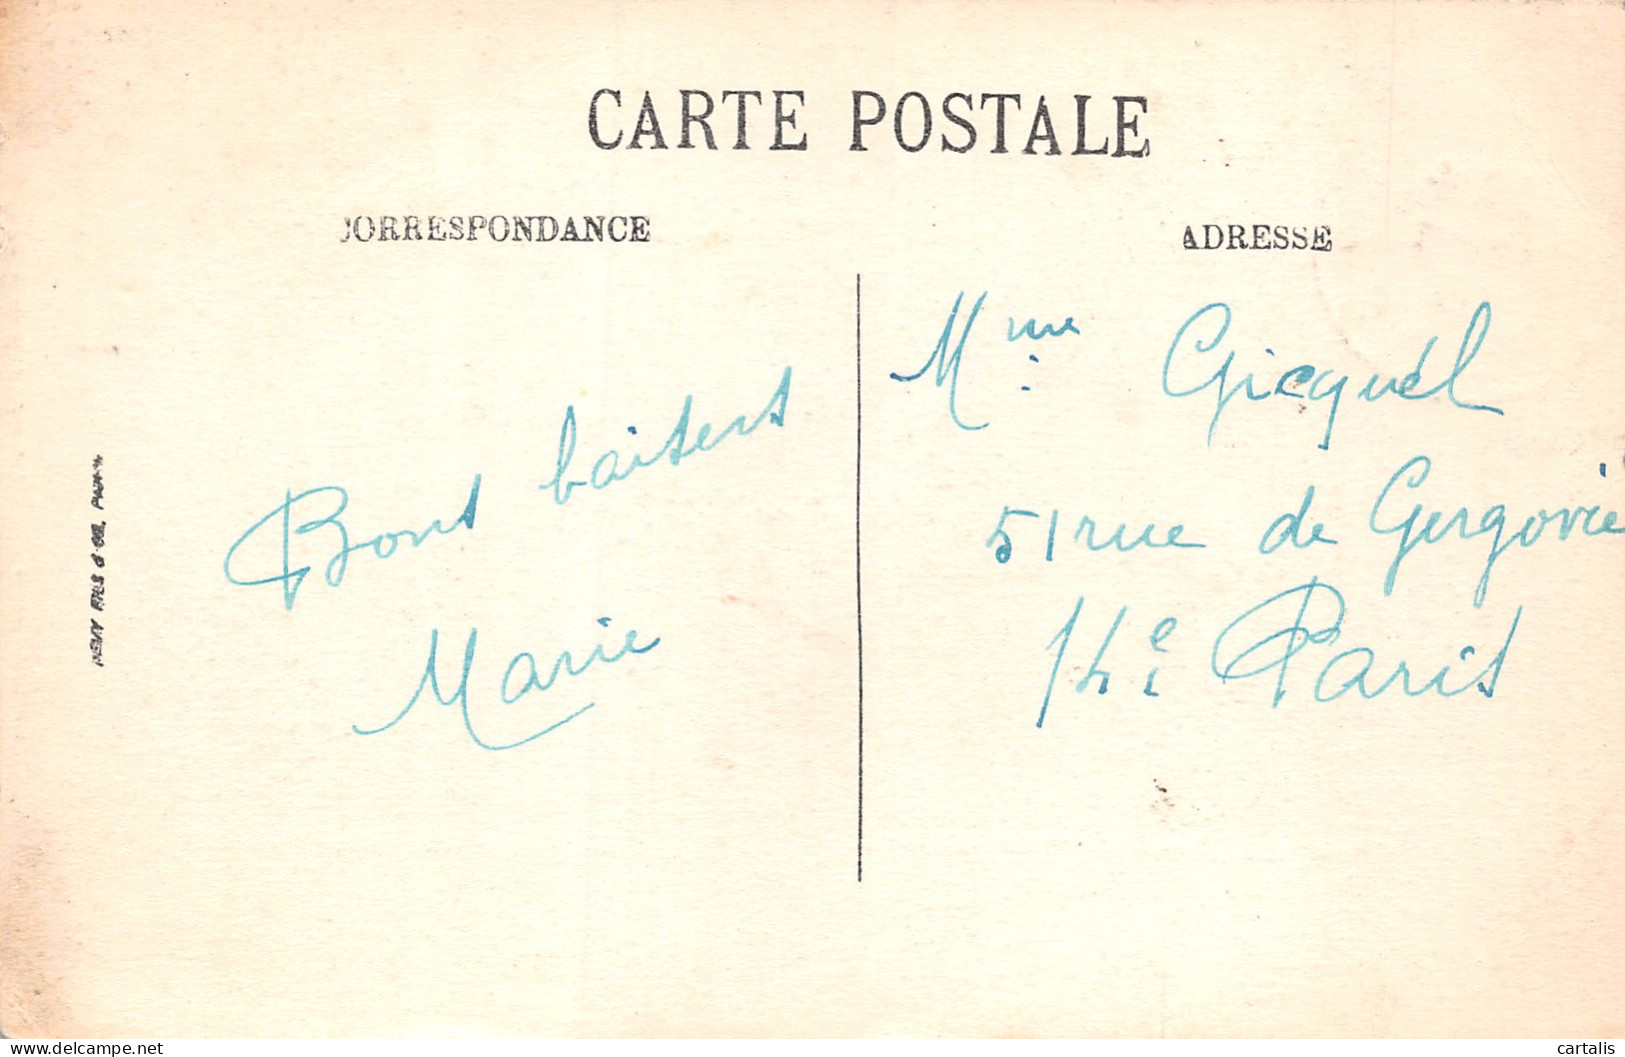 CARTE POSTALE
CORRESPONDANCE
Bons baisers
Marie
ADRESSE
Mme Gicquel
51 rue de Gergovie
14e Paris
www.delcampe.net
cartalis